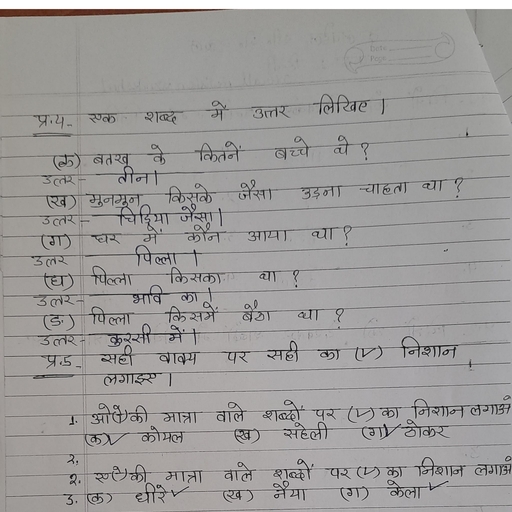 Date
Page
प्र.4- एक शब्द में उत्तर लिखिए।
(क) बतख के कितनें बच्चे थे?
उत्तर- तीन।
(ख) मुनमुन किसके जैसा उड़ना चाहता था?
उत्तर- चिड़िया जैसा।
(ग) घर में कौन आया था?
उत्तर पिल्ला।
(घ) पिल्ला किसका था?
उत्तर- भावि का।
(ङ) पिल्ला किसमें बैठा था?
उत्तर- कुरसी में।
प्र.5 सही वाक्य पर सही का (✓) निशान
लगाइए।
1. ओ(ो)की मात्रा वाले शब्दों पर (✓) का निशान लगाओ
(क)✓ कोमल (ख) सहेली (ग)✓ ठोकर
2.
2. ए(े)की मात्रा वाले शब्दों पर (✓) का निशान लगाओ
3. (क) धीरे✓ (ख) नैया (ग) केला✓